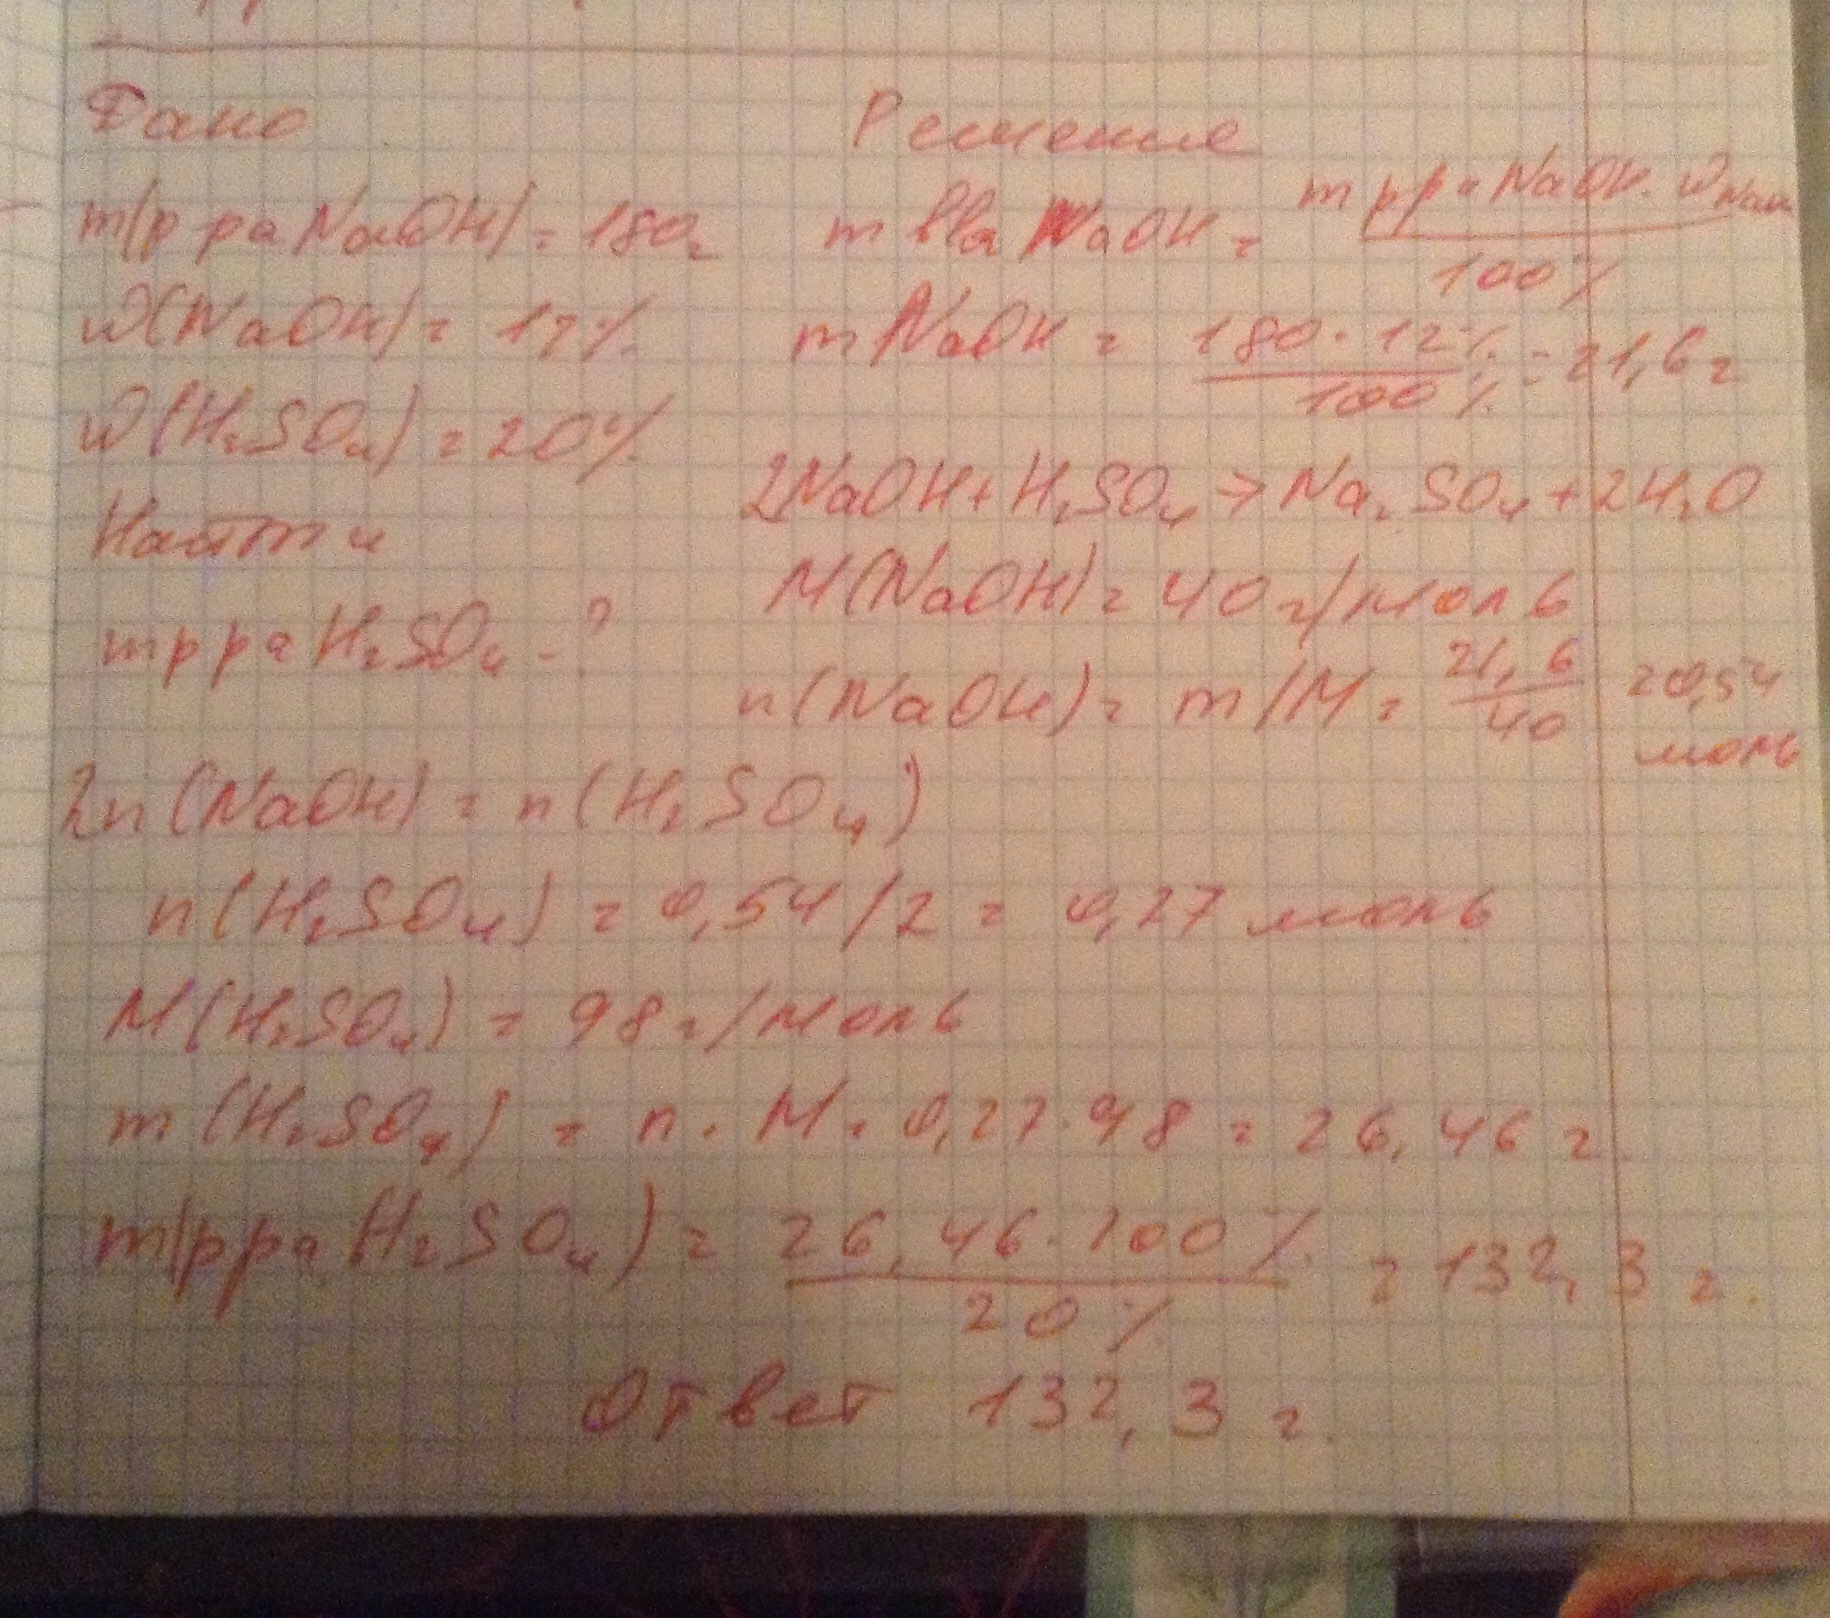 Дано
m(р ра NaOH) = 180г
ω(NaOH) = 12%
ω(H₂SO₄) = 20%
Найти
m р ра H₂SO₄ - ?
Решение
m в ва NaOH = m р ра NaOH · ω NaOH / 100%
m NaOH = 180 · 12% / 100% = 21,6 г
2NaOH + H₂SO₄ → Na₂SO₄ + 2H₂O
M(NaOH) = 40 г/моль
n(NaOH) = m/M = 21,6 / 40 = 0,54 моль
2n(NaOH) = n(H₂SO₄)
n(H₂SO₄) = 0,54/2 = 0,27 моль
M(H₂SO₄) = 98 г/моль
m(H₂SO₄) = n · M = 0,27 · 98 = 26,46 г.
m(р ра H₂SO₄) = 26,46 · 100% / 20% = 132,3 г.
Ответ 132,3 г.